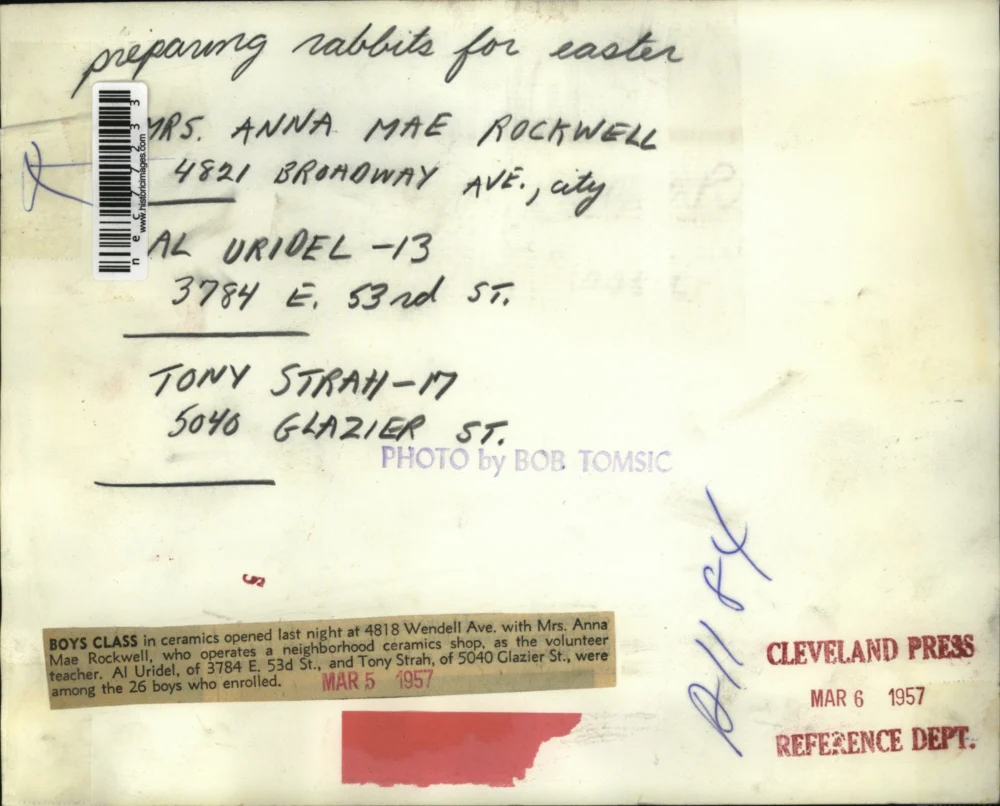 preparing rabbits for easter
MRS. ANNA MAE ROCKWELL
4821 BROADWAY AVE., city
AL URIDEL -13
3784 E. 53rd ST.
TONY STRAH-17
5040 GLAZIER ST.
PHOTO by BOB TOMSIC
www.historicimages.com
S
BOYS CLASS in ceramics opened last night at 4818 Wendell Ave. with Mrs. Anna
Mae Rockwell, who operates a neighborhood ceramics shop, as the volunteer
teacher. Al Uridel, of 3784 E. 53d St., and Tony Strah, of 5040 Glazier St., were
among the 26 boys who enrolled.
MAR 5 1957
CLEVELAND PRESS
MAR 6 1957
REFERENCE DEPT.